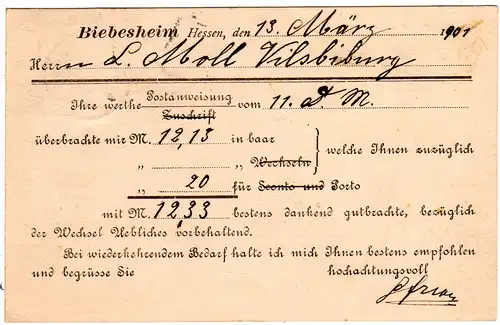 Biebesheim Hessen, den 13. März 1901
Herrn L. Moll Vilsbiburg
Ihre werthe Postanweisung vom 11. d. M.
Zuschrift
überbrachte mir M. 12,13 in baar
„ „ Wechseln welche Ihnen zuzüglich
„ 20 für Sconto und Porto
mit M. 12,33 bestens dankend gutbrachte, bezüglich
der Wechsel Uebliches vorbehaltend.
Bei wiederkehrendem Bedarf halte ich mich Ihnen bestens empfohlen
und begrüsse Sie hochachtungsvoll